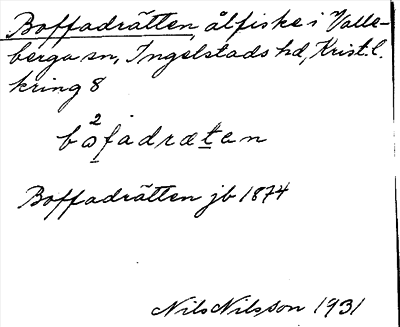 Boffadrätten, ålfiske i Valle-
berga sn, Ingelstads hd, Krist. l.
kring 8
bo²fadræten
Boffadrätten jb 1874
Nils Nilsson 1931